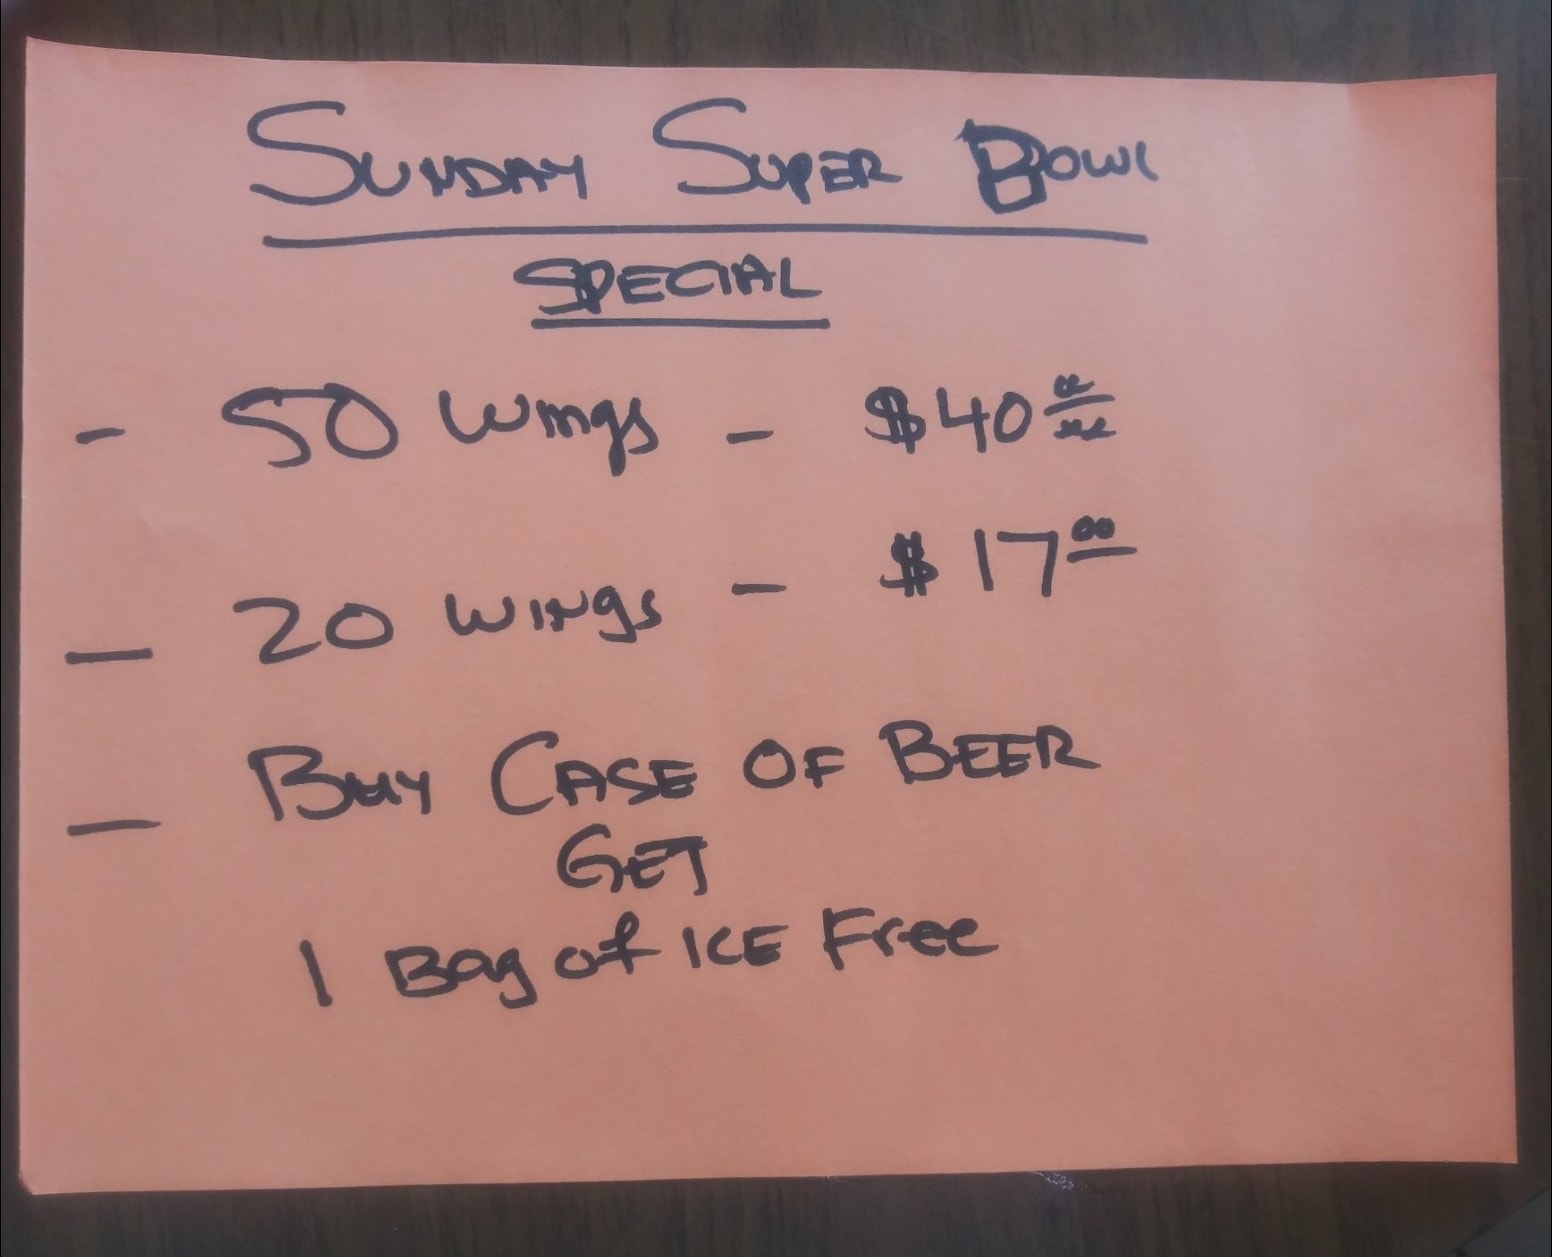 SUNDAY SUPER BOWL
SPECIAL
- 50 Wings - $40
- 20 WINgs - $17.00
- BUY CASE OF BEER
GET
1 Bag of ICE Free